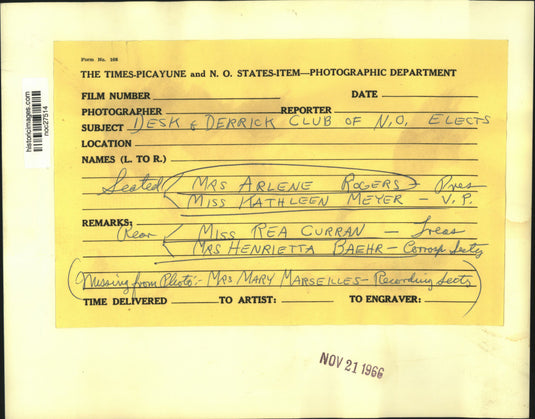 Form No. 168
THE TIMES-PICAYUNE and N. O. STATES-ITEM—PHOTOGRAPHIC DEPARTMENT
FILM NUMBER DATE
PHOTOGRAPHER REPORTER
SUBJECT DESK & DERRICK CLUB OF N.O. ELECTS
LOCATION
NAMES (L. TO R.)
Seated MRS ARLENE ROGERS - Pres
MISS KATHLEEN MEYER - V.P.
REMARKS:
Rear MISS REA CURRAN - Treas
MRS HENRIETTA BAEHR - Corresp Secty
(Missing from Photo:- MRS MARY MARSEILLES - Recording Secty)
TIME DELIVERED TO ARTIST: TO ENGRAVER:
NOV 21 1966
historicimages.com
noc27514